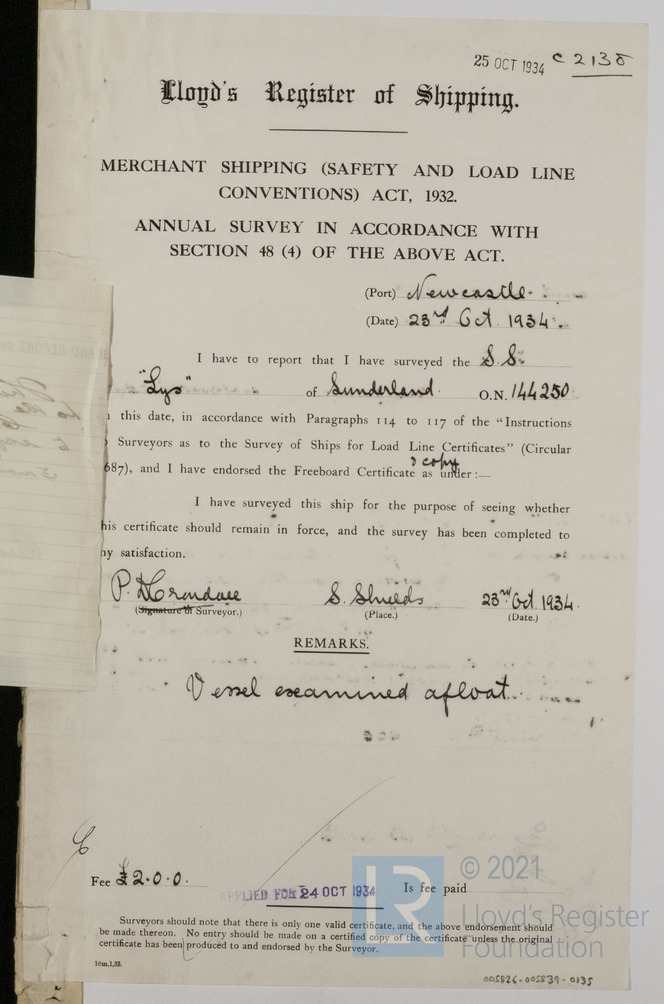 25 OCT 1934 C 2138
Lloyd's Register of Shipping.
MERCHANT SHIPPING (SAFETY AND LOAD LINE
CONVENTIONS) ACT, 1932.
ANNUAL SURVEY IN ACCORDANCE WITH
SECTION 48 (4) OF THE ABOVE ACT.
(Port) Newcastle.
(Date) 23rd Oct 1934.
I have to report that I have surveyed the S.S.
"Lys" of Sunderland. O.N. 144250
this date, in accordance with Paragraphs 114 to 117 of the "Instructions
Surveyors as to the Survey of Ships for Load Line Certificates" (Circular
& copy
687), and I have endorsed the Freeboard Certificate as under :—
I have surveyed this ship for the purpose of seeing whether
his certificate should remain in force, and the survey has been completed to
my satisfaction.
P. S. Shields 23rd Oct 1934.
(Signature of Surveyor.) (Place.) (Date.)
REMARKS.
Vessel examined afloat.
Fee £2.0.0. APPLIED FOR 24 OCT 1934 Is fee paid
Surveyors should note that there is only one valid certificate, and the above endorsement should
be made thereon. No entry should be made on a certified copy of the certificate unless the original
certificate has been produced to and endorsed by the Surveyor.
10m,1,33.
© 2021
LR Lloyd's Register
Foundation
005826-005839-0135